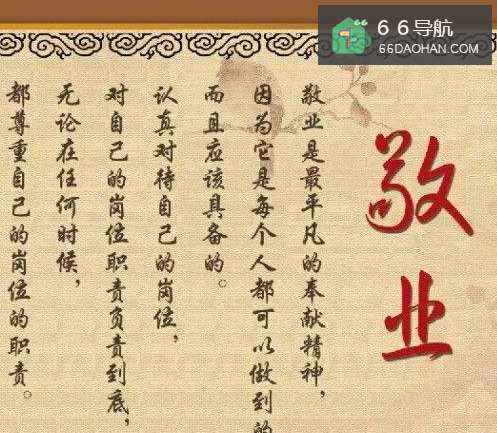 66导航
66DAOHAN.COM
敬业
敬业是最平凡的奉献精神，
因为它是每个人都可以做到的
而且应该具备的。
认真对待自己的岗位，
对自己的岗位职责负责到底，
无论在任何时候，
都尊重自己的岗位的职责。